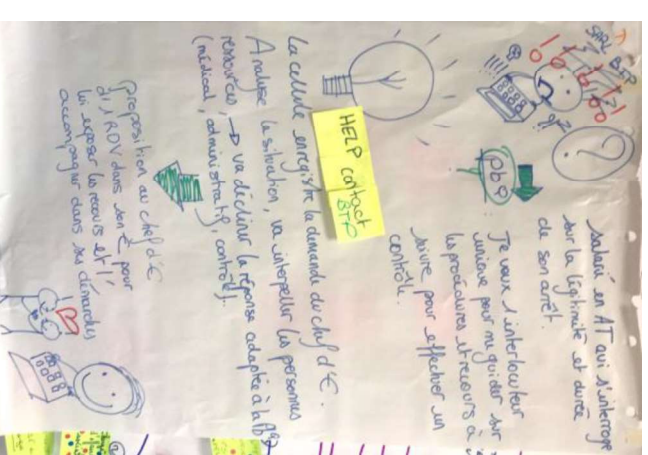 SARL BTP
?
!!!
pbq
salarié en AT qui s'interroge
sur la légitimité et durée
de son arrêt.
Je veux 1 interlocuteur
unique pour me guider sur
les procédures et recours à
suivre pour effectuer un
contrôle.
HELP contact
BTP
La cellule enregistre la demande du chef d'€.
Analyse la situation, va interpeller les personnes
ressources, → va décliner la réponse adaptée à la pbq
(médical, administratif, contrôle).
proposition au chef d'€
d'1 RDV dans son € pour
lui exposer les recours et l'
accompagner dans ses démarches